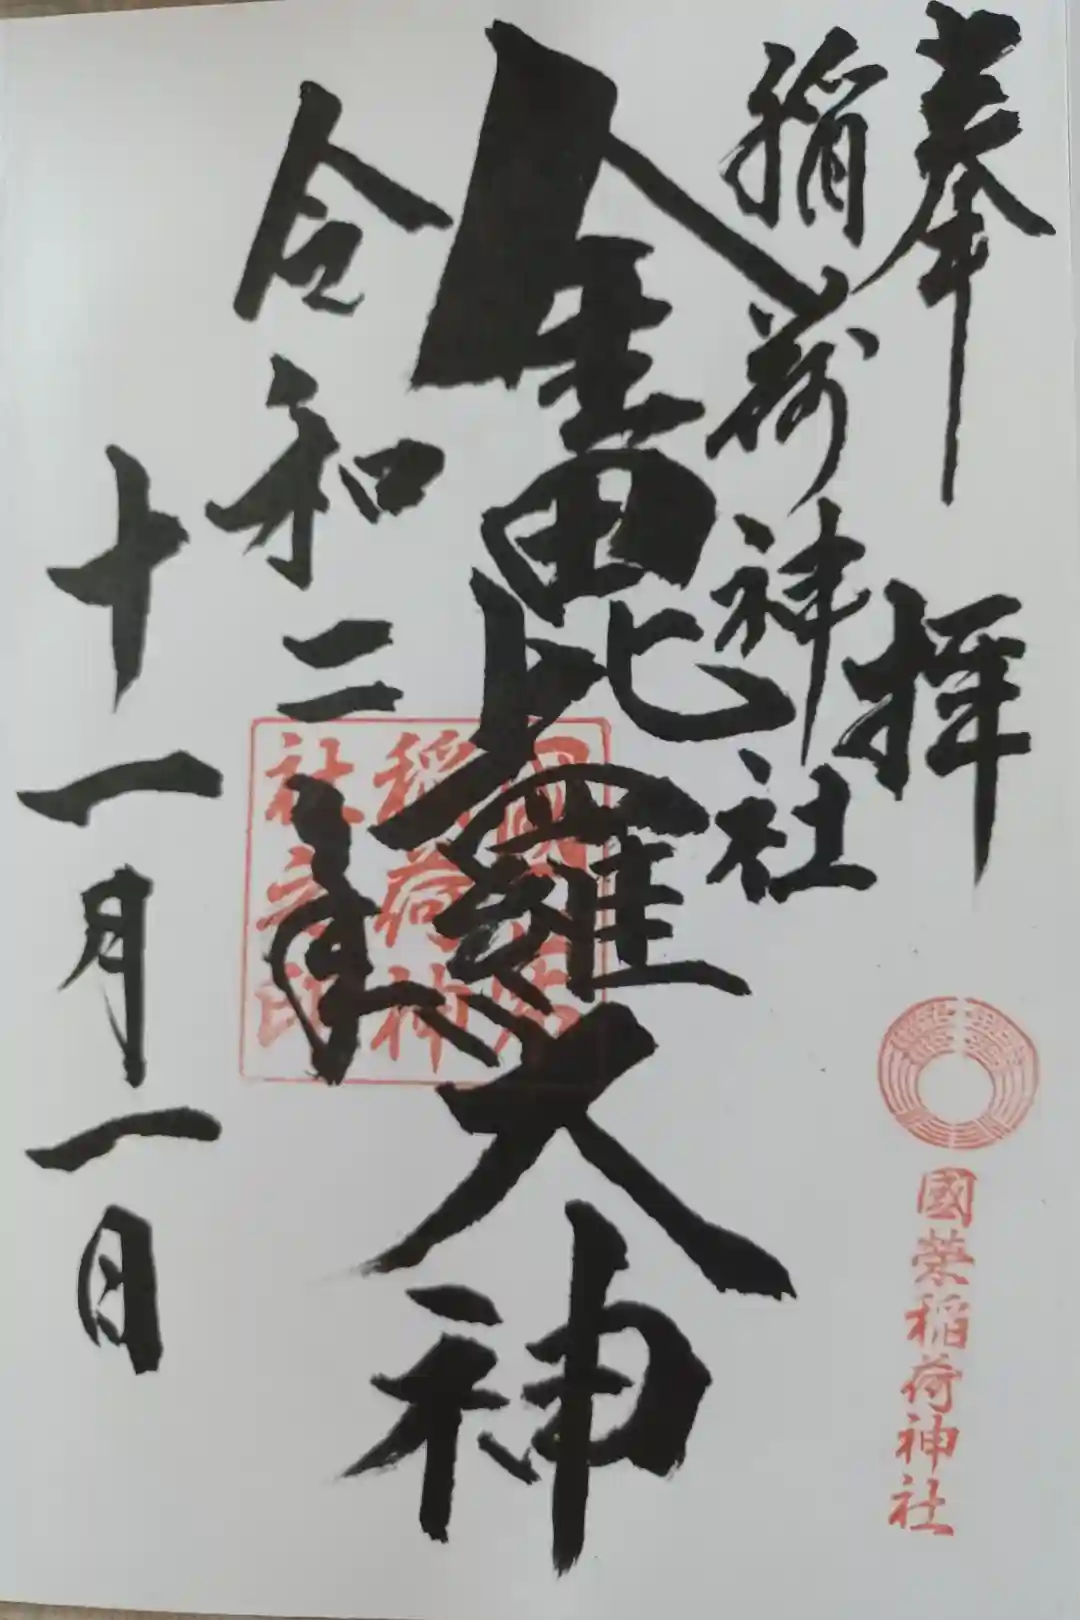 奉拝
稲荷神社
金毘羅大神
令和二年
十一月一日
國榮稲荷神社
稲荷神
社之印